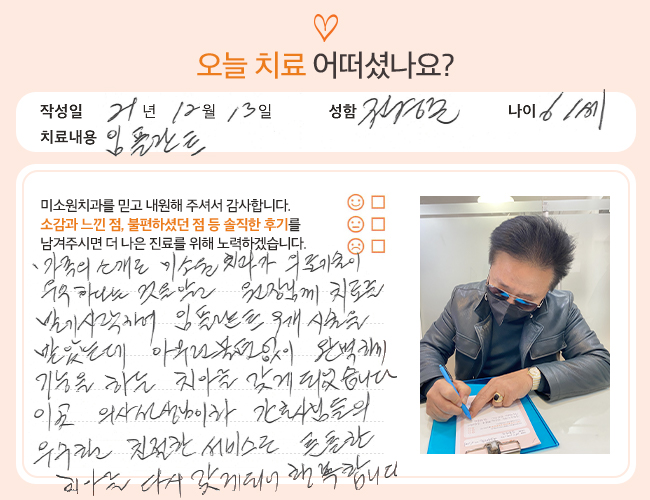 오늘 치료 어떠셨나요?
작성일 21년 12월 13일 성함 나이 61세
치료내용 임플란트
미소원치과를 믿고 내원해 주셔서 감사합니다.
소감과 느낀 점, 불편하셨던 점 등 솔직한 후기를
남겨주시면 더 나은 진료를 위해 노력하겠습니다.
가족의 소개로 미소원 치과가 의료기술이
우수하다는 것을 알고 원장님께 치료를
받기 시작하여 임플란트 시술을
받았는데 아무런 불편없이 완벽하게
기능을 하는 치아를 갖게 되었습니다
의사선생님이랑 간호사님들의
우수한 친절한 서비스로 튼튼한
치아를 다시 갖게되어 행복합니다